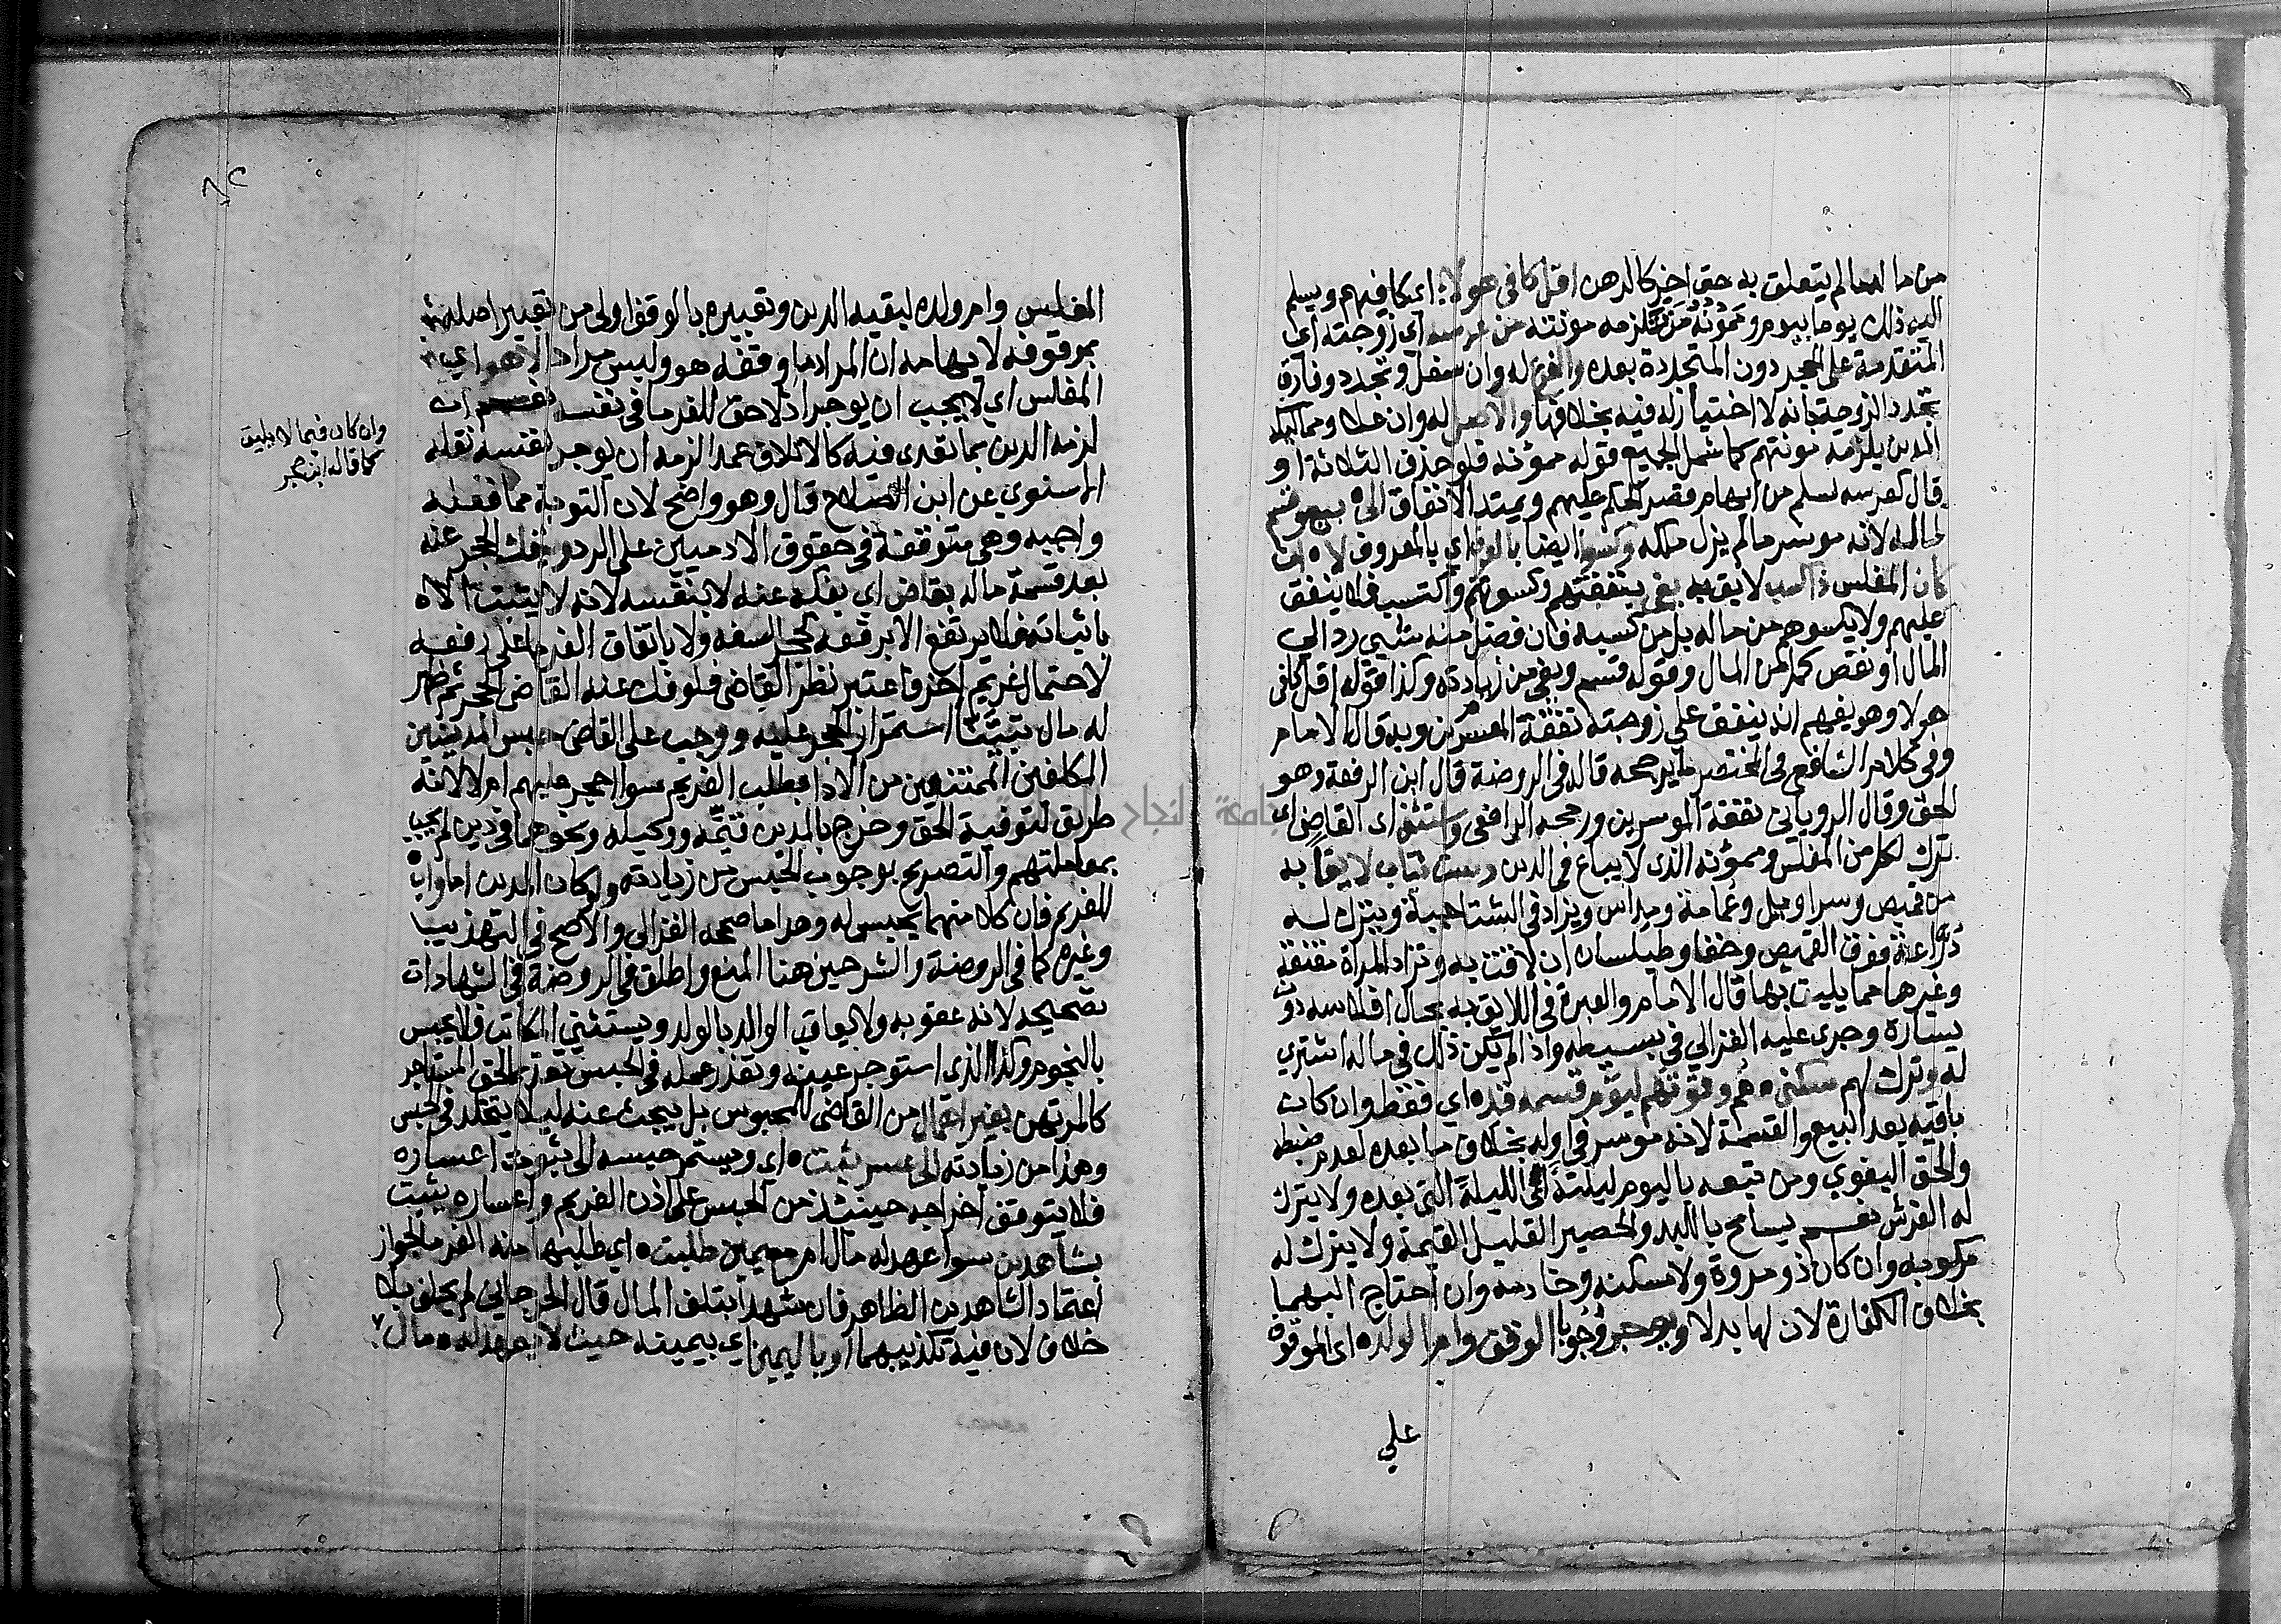 من مالهما لم يتعلق به حق اخر كالرهن اقل كافي هولاء اي كافيهم ويسلم
اليه ذلك يوما بيوم وممونه من تلزمه مونته من عرسه اي زوجته اي
المتقدمة على الحجر دون المتجددة بعده وان سفل وتجدد وفارق
تجدد الزوجة بانه لا اختيار له فيه بخلافها والاصل له وان علا ومماليك
المدين يلزمه مونتهم كما شمل الجميع قوله ممونه فلو حذف الثلاثة او
قال كعرسه سلم من ايهام قصر الحكم عليهم ويمتد الانفاق الى بيعه ثم
لماله لانه موسر ما لم يزل ملكه وكسوا ايضا بالعرف اي بالمعروف لا وان
كان المفلس ذا كسب لايق به يفي بنفقتهم وكسوتهم واكتسب فلا ينفق
عليهم ولا يكسوهم من ماله بل من كسبه فان فضل منه شيي رد الي
المال او نقص كمل من المال وقوله قسم وبقي من زيادته وكذا قوله اقل كافي
هولا وهو يفهم انه ينفق علي زوجته نفقة المعسرين وبه قال الامام
وفي كلام الشافعي في المختصر ما يرجحه قاله في الروضة قال ابن الرفعة وهو
الحق وقال الروياني نفقة الموسرين ورجحه الرافعي واستثنى اي القاضي اي
ترك لكل من المفلس وممونه الذي لا يباع في الدين دست ثياب لايقا به
من قميص وسراويل وعمامة ومداس ويزاد في الشتا جبة ويترك له
دراعة فوق القميص وخفا وطيلسان ان لاقت به وتزاد المراة مقنعة
وغيرها مما يليق بها قال الامام والعبرة في اللايق به بحال افلاسه دون
يساره وجرى عليه الغزالي في بسيطه واذا لم يكن ذلك في ماله اشتري
له وترك لهم سكنى وقوتهم ليوم قسمه قده اي فقط وان كانت
باقيه بعد البيع والقسمة لانه موسر في اوله بخلاف ما بعده لعدم ضبطه
والحق البغوي ومن تبعه باليوم ليلته اي الليلة التي بعده ولا يترك
له الفرش نعم يسامح باللبد والحصير القليل القيمة ولا يترك له
مركوبه وان كان ذو مروة ولا مسكنه وخادمه وان احتاج اليهما
بخلاف الكفارة لان لها بدلا ويوجر وجوبا الوقف وام الولده اي الموقوف
علي
المفلس وام ولده لبقيه الدين وتعبيره بالوقف اولى من تعبير اصله
بموقوفه لايهامه ان المراد ما وقفه هو وليس مرادا لا هو اي
المفلس اي لا يجب ان يوجر اذ لا حق للغرما في نفسه نعم ان
لزمه الدين بما تعدى فيه كالاتلاف عمدا لزمه ان يوجر نفسه نقله
الاسنوي عن ابن الصلاح قال وهو واضح لان التوبة مما فعله
واجبه وهي متوقفة في حقوق الادميين على الرد ويفك الحجر عنه
بعد قسمة ماله بقاض اي يفكه عنه لا بنفسه لانه لا يثبت الا ه
باثباته فلا يرتفع الا برفعه كحجر السفه ولا باتفاق الغرما على رفعه
لاحتمال غريم اخر فاعتبر نظر القاضي فلو فك عنه القاضي الحجر ثم ظهر
له مال تبيننا استمرار الحجر عليه ووجب على القاضي حبس المدينين
المكلفين الممتنعين من الادا بطلب الغريم سوا احجر عليهم ام لا لانه
طريق لتوفية الحق وخرج بالمدين قيمه ووكيله ونحوهما في دين لم يجب
بمعاملتهم والتصريح بوجوب الحبس من زيادته ولو كان المدين اما وابا
للغريم فان كلا منهما يحبس له وهذا ما صححه الغزالي والاصح في التهذيب
وغيره كما في الروضة والشرحين هنا المنع واطلق في الروضة في الشهادات
تصحيحه لانه عقوبه ولا يعاقب الوالد بالولد ويستثنى المكاتب فلا يحبس
بالنجوم وكذا الذي استوجر عينه وتعذر عمله في الحبس تقديما لحق المستاجر
كالمرتهن بغير اغفال من القاضي المحبوس بل يبحث عنه ليلا يتخلد في الحبس
وهذا من زيادته الى عسر يثبت اي ويستمر حبسه الى ثبوت اعساره
فلا يتوقف اخراجه حينئذ من الحبس على اذن الغريم واعساره يثبت
بشاهدين سوا عهد له مال ام مع يمين طلبت اي طلبها منه الغرما لجواز
اعتماد الشاهدين الظاهر فان شهدا بتلف المال قال الجرجاني لم يحلف بلا
خلاف لان فيه تكذيبهما او باليمين اي بيمينه حيث لا يعهد له مال
وان كان فيما لا يليق
كما قاله ابن حجر